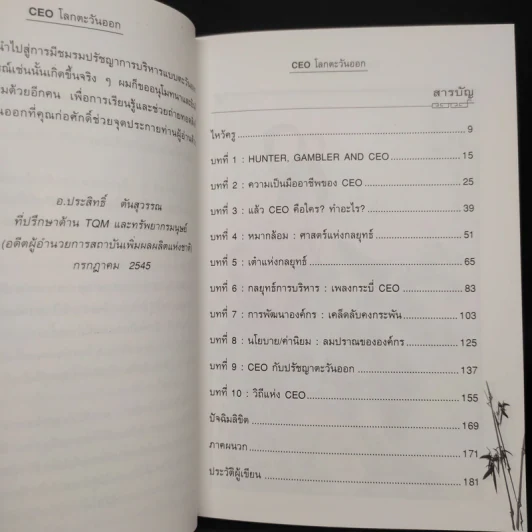 CEO โลกตะวันออก
นำไปสู่การมีชมรมปรัชญาการบริหารแบบตะวันออก
ณ์เช่นนั้นเกิดขึ้นจริง ๆ ผมก็ขออนุโมทนา
มด้วยอีกคน เพื่อการเรียนรู้และช่วยถ่ายทอด
นออกที่คุณก่อศักดิ์ช่วยจุดประกายท่านผู้อ่าน
อ.ประสิทธิ์ ตันสุวรรณ
ที่ปรึกษาด้าน TQM และทรัพยากรมนุษย์
(อดีตผู้อำนวยการสถาบันเพิ่มผลผลิตแห่งชาติ)
กรกฎาคม 2545
CEO โลกตะวันออก
สารบัญ
ไหว้ครู 9
บทที่ 1 : HUNTER, GAMBLER AND CEO 15
บทที่ 2 : ความเป็นมืออาชีพของ CEO 25
บทที่ 3 : แล้ว CEO คือใคร? ทำอะไร? 39
บทที่ 4 : หมากล้อม : ศาสตร์แห่งกลยุทธ์ 51
บทที่ 5 : เต๋าแห่งกลยุทธ์ 65
บทที่ 6 : กลยุทธ์การบริหาร : เพลงกระบี่ CEO 83
บทที่ 7 : การพัฒนาองค์กร : เคล็ดลับคงกระพัน 103
บทที่ 8 : นโยบาย/ค่านิยม : ลมปราณขององค์กร 125
บทที่ 9 : CEO กับปรัชญาตะวันออก 137
บทที่ 10 : วิถีแห่ง CEO 155
ปัจฉิมลิขิต 169
ภาคผนวก 171
ประวัติผู้เขียน 181